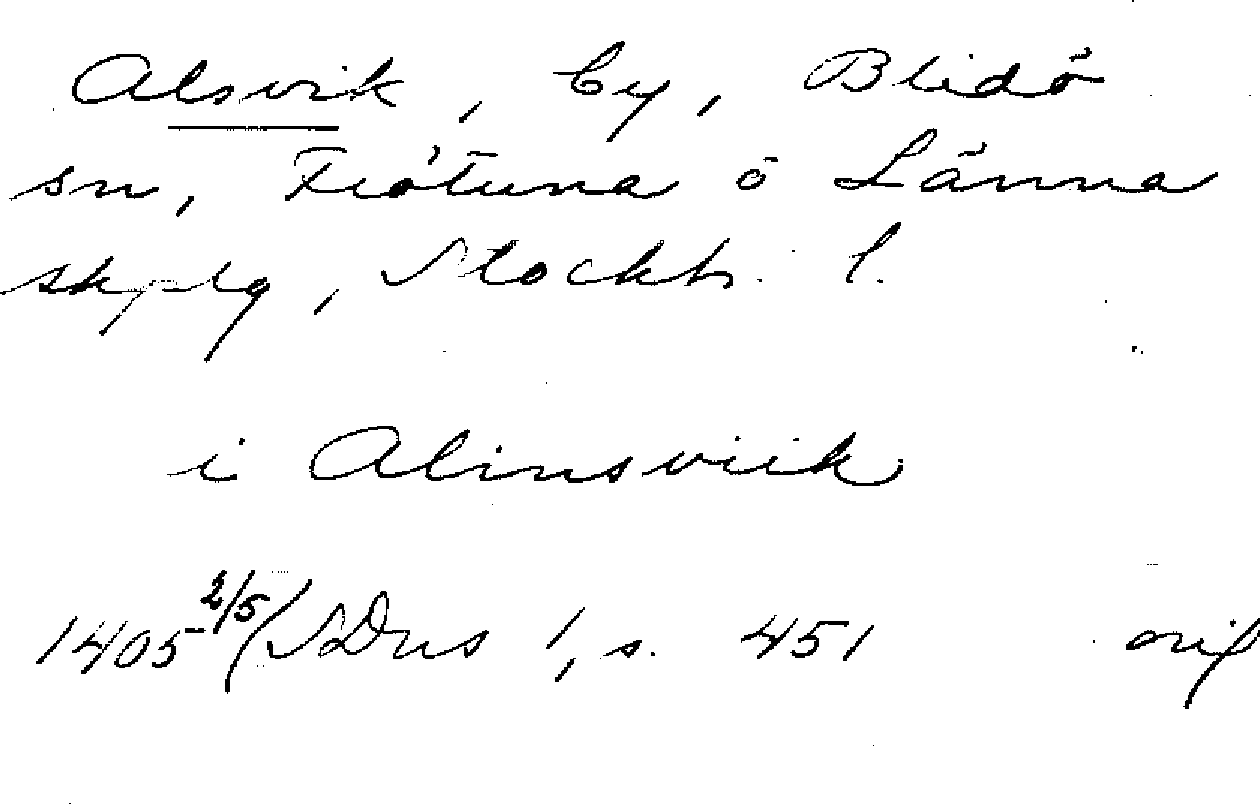 Alsvik, by, Blidö
sn, Frötuna o Länna
skplg, Stockh. l.
i Alinsviik
1405 2/5 (SDns 1, s. 451 orig